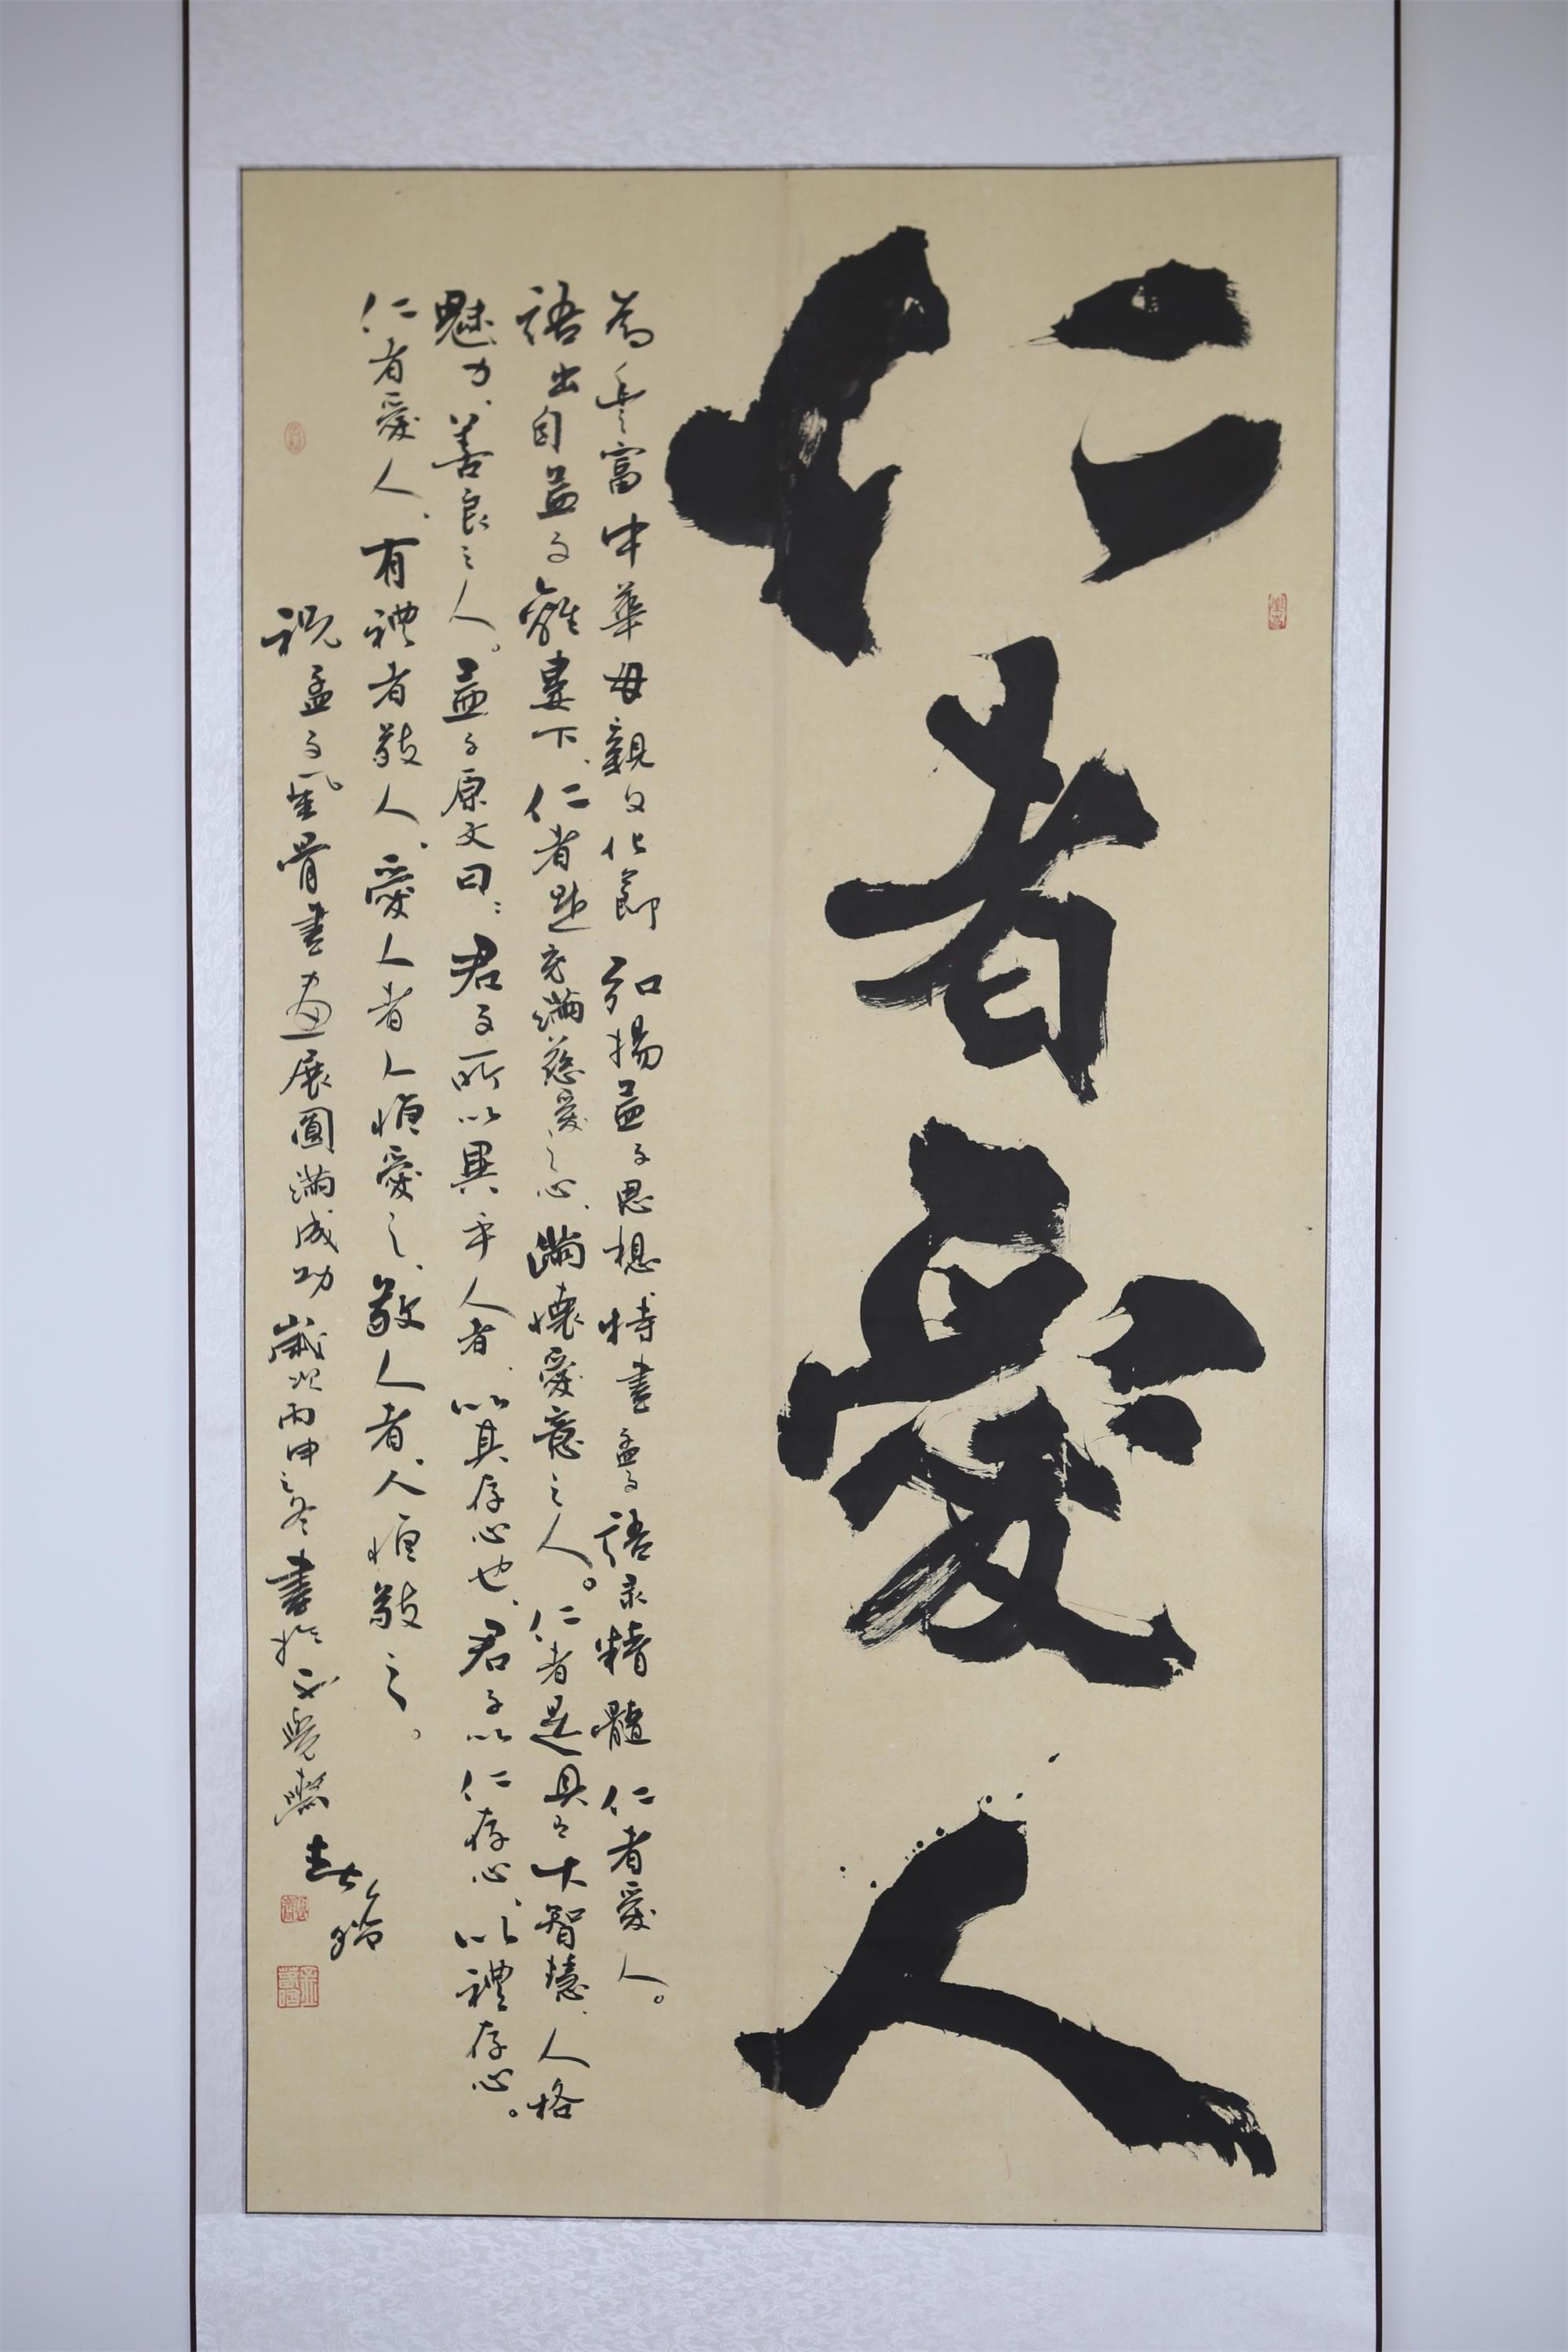 仁者愛人
為豐富中華母親文化節弘揚孟子思想特書孟子語录精髓仁者愛人。
語出自孟子離婁下、仁者是充滿慈愛之心、滿懷愛意之人。仁者是具有大智慧、人格
魅力、善良之人。孟子原文曰：君子所以異乎人者、以其存心也、君子以仁存心、以禮存心。
仁者愛人、有禮者敬人、愛人者人恒愛之、敬人者、人恒敬之。
祝孟子風骨書畫展圓滿成功歲次丙申之冬書於